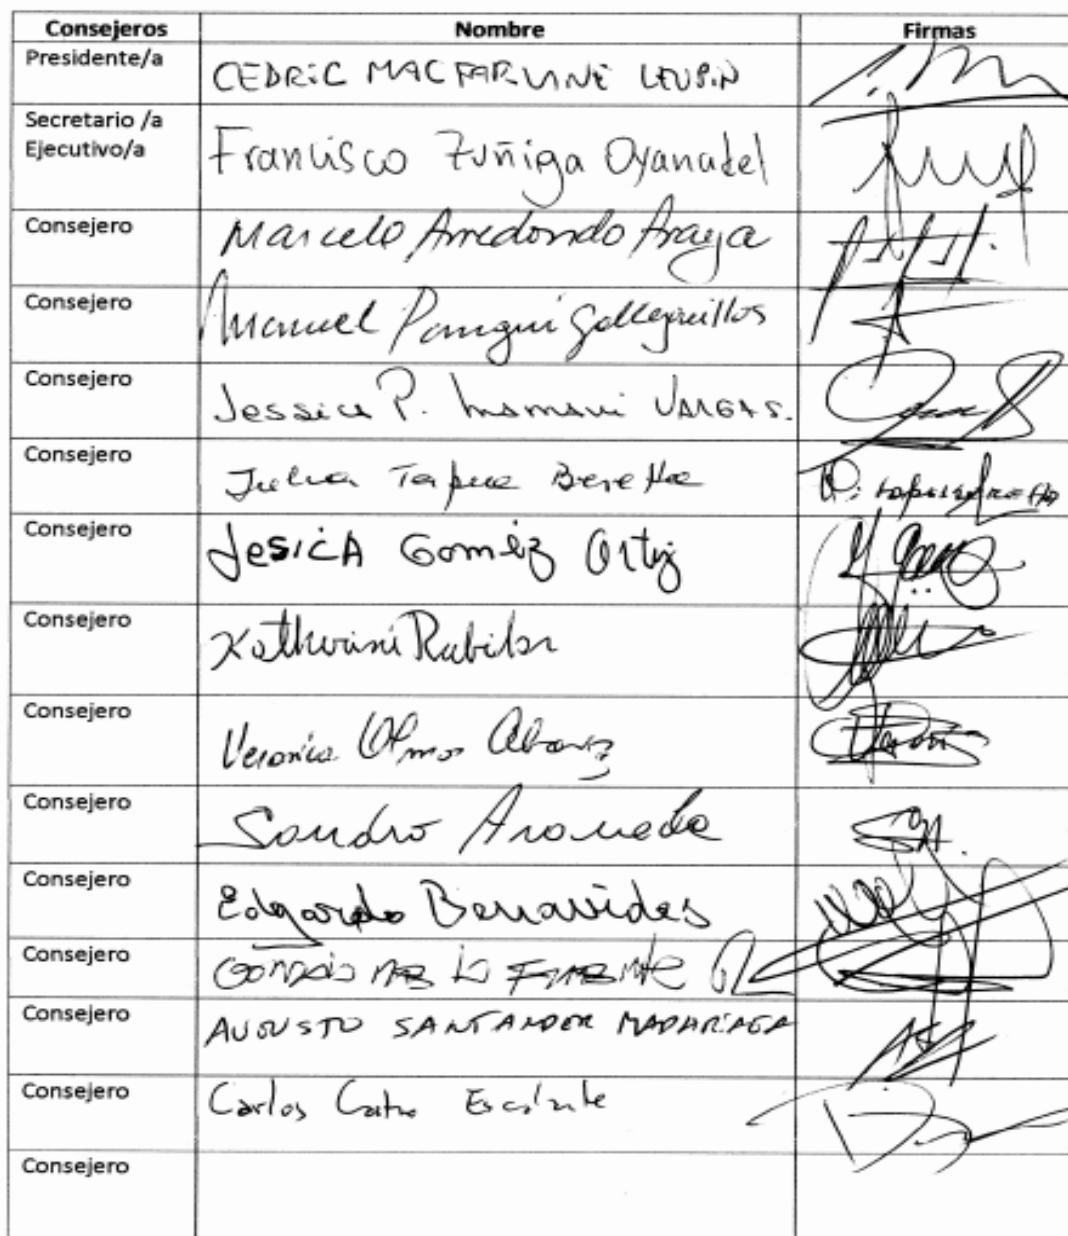 Consejeros Nombre Firmas
Presidente/a CEDRIC MACFARLANE
Secretario /a
Ejecutivo/a Francisco Zuñiga Oyanadel
Consejero Marcelo Arredondo Araya
Consejero Manuel Pangui Galleguillos
Consejero Jessica P. Mamani VARGAS.
Consejero Julia Tapia Beretta
Consejero JesiCA Gomez Ortiz
Consejero Katherine Rubilar
Consejero Veronica Olmos
Consejero Sandro Araneda
Consejero Edgardo Benavides
Consejero
Consejero AUGUSTO SANTANDER MADARIAGA
Consejero Carlos Castro Escalante
Consejero